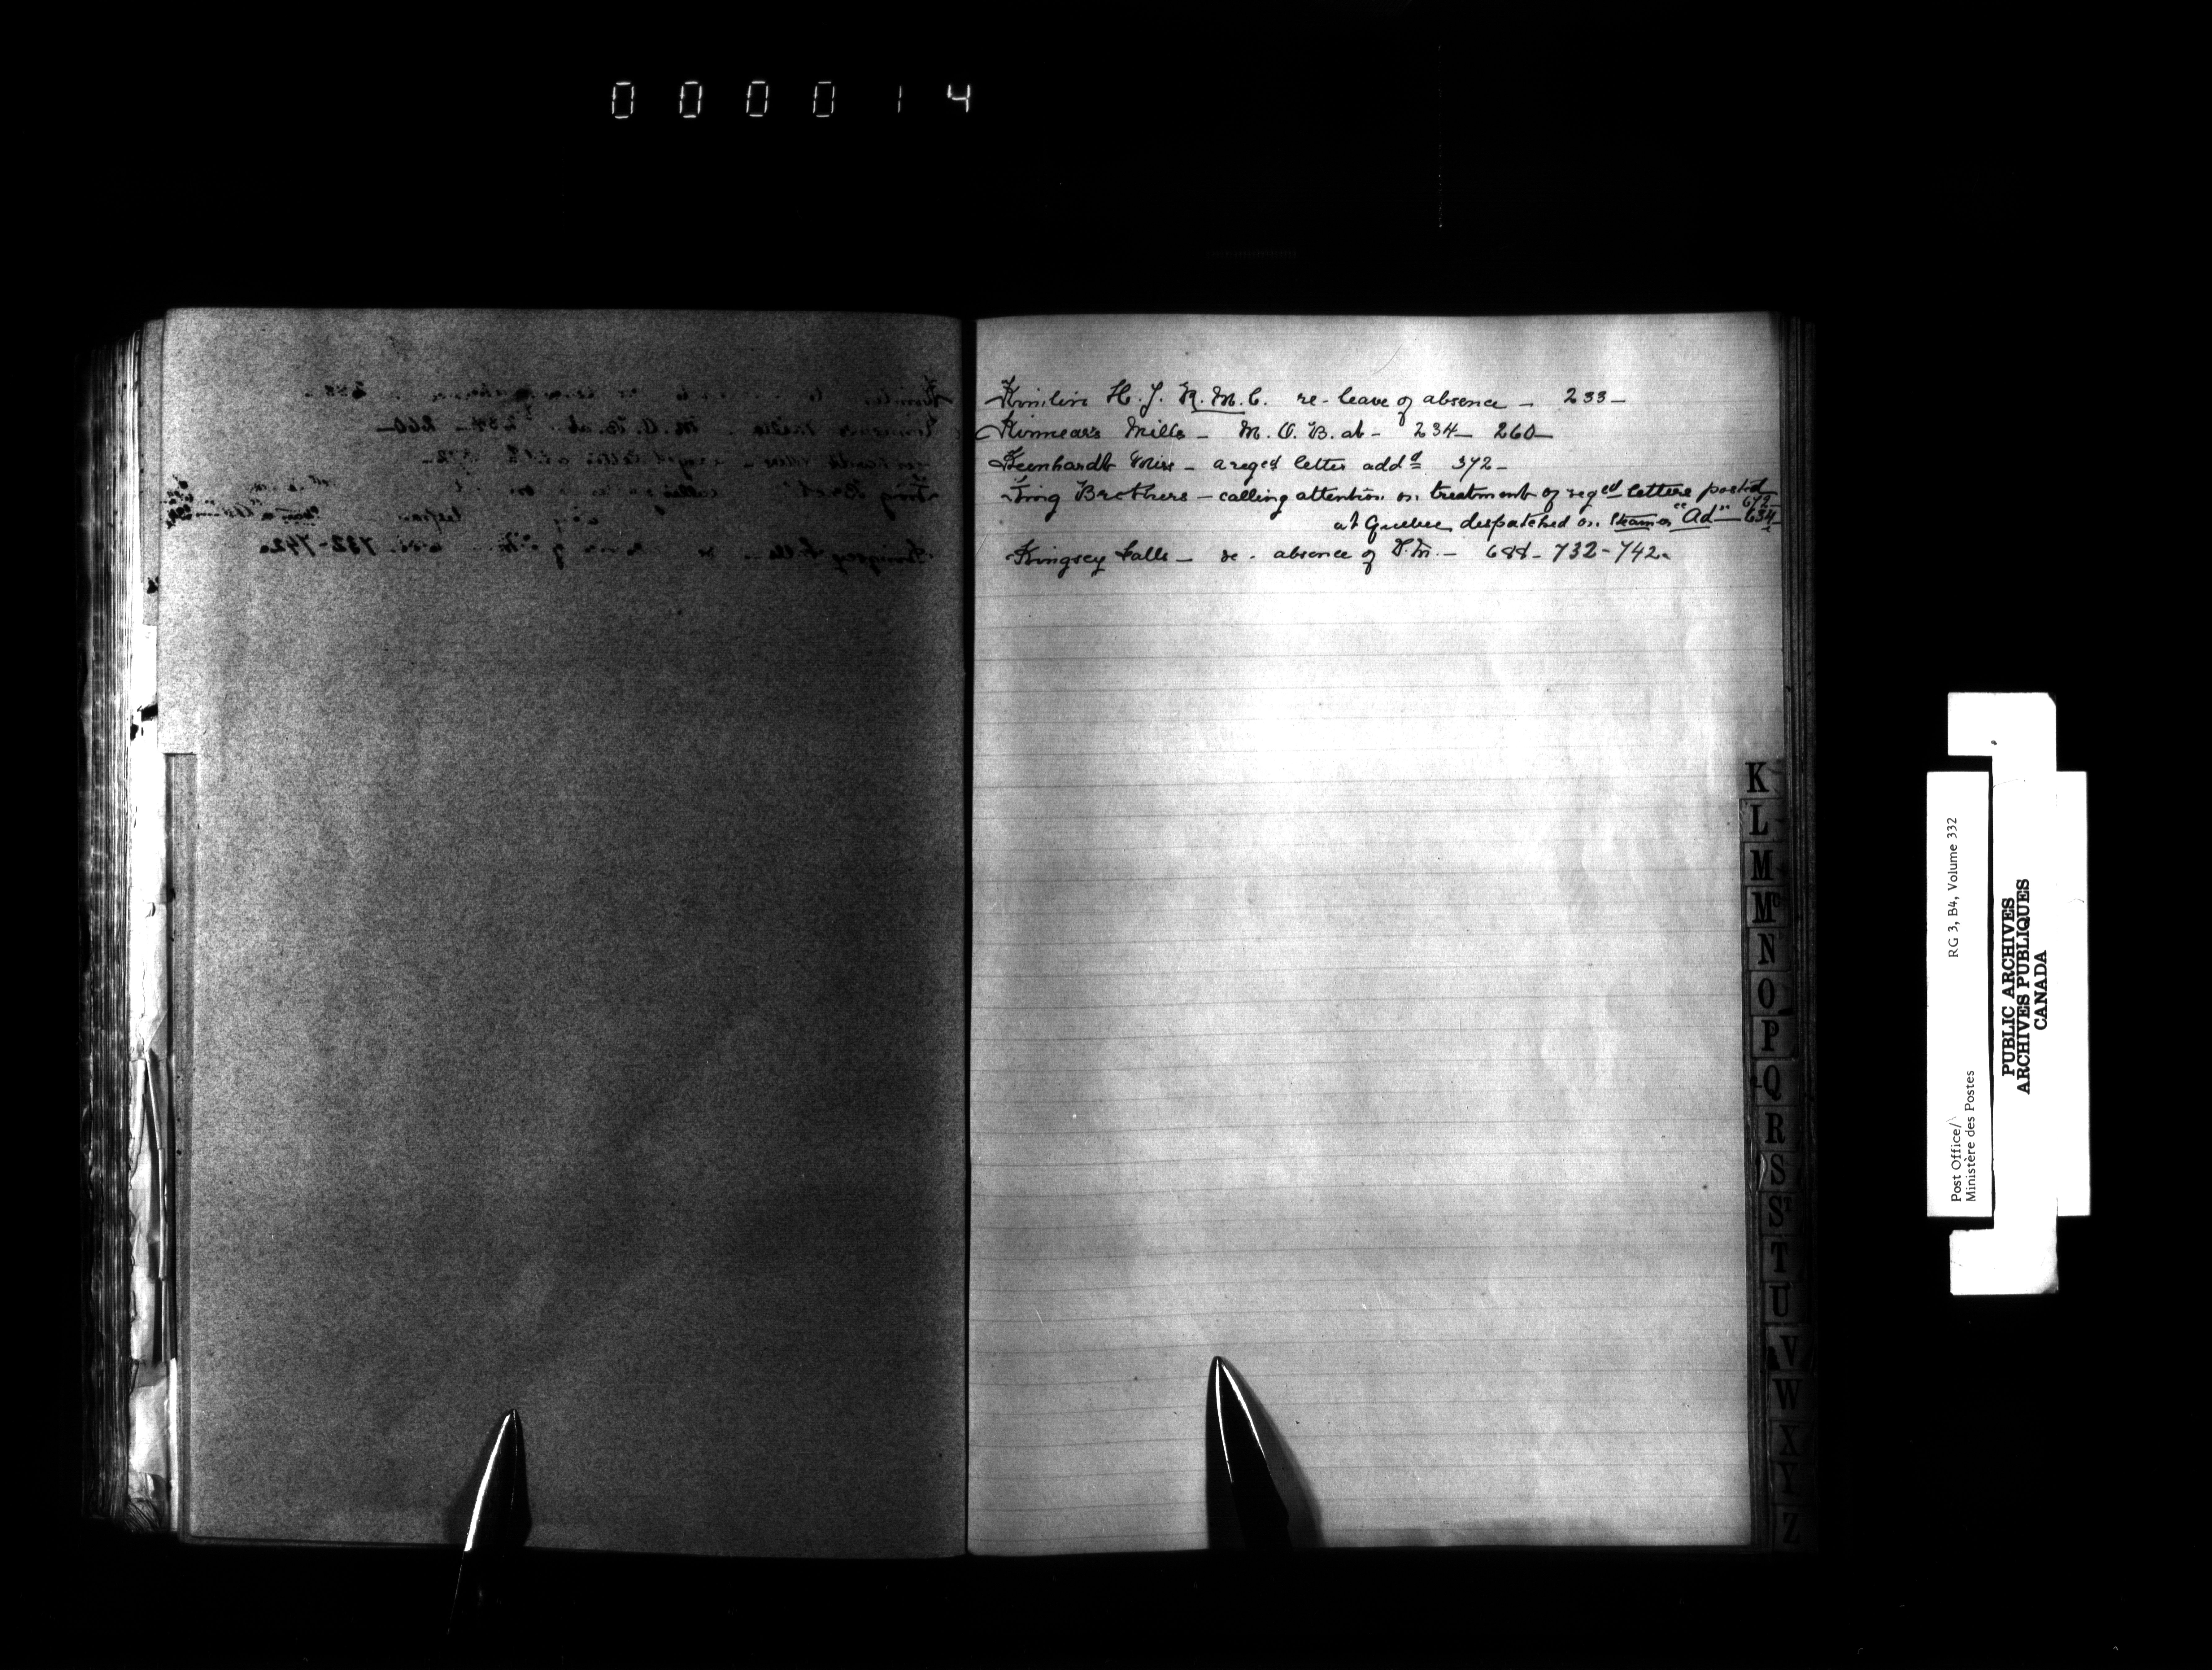 000014
Kimlin H. J. R. M. C. re - leave of absence - 233 -
Kinnear's Mills - M. O. B. at - 234 - 260 -
Miss - a reg^ed letter add^d 372 -
King Brothers - calling attention on treatment of reg^ed letters posted 672 -
at Quebec despatched on Steamer "Ad" - 634 -
Kingsey Falls - re - absence of P.M. - 688 - 732 - 742 -
K
L
M
Mc
N
O
P
Q
R
S
ST
T
U
V
W
X
Y
Z
Post Office/
Ministère des Postes
RG 3, B4, Volume 332
PUBLIC ARCHIVES
ARCHIVES PUBLIQUES
CANADA